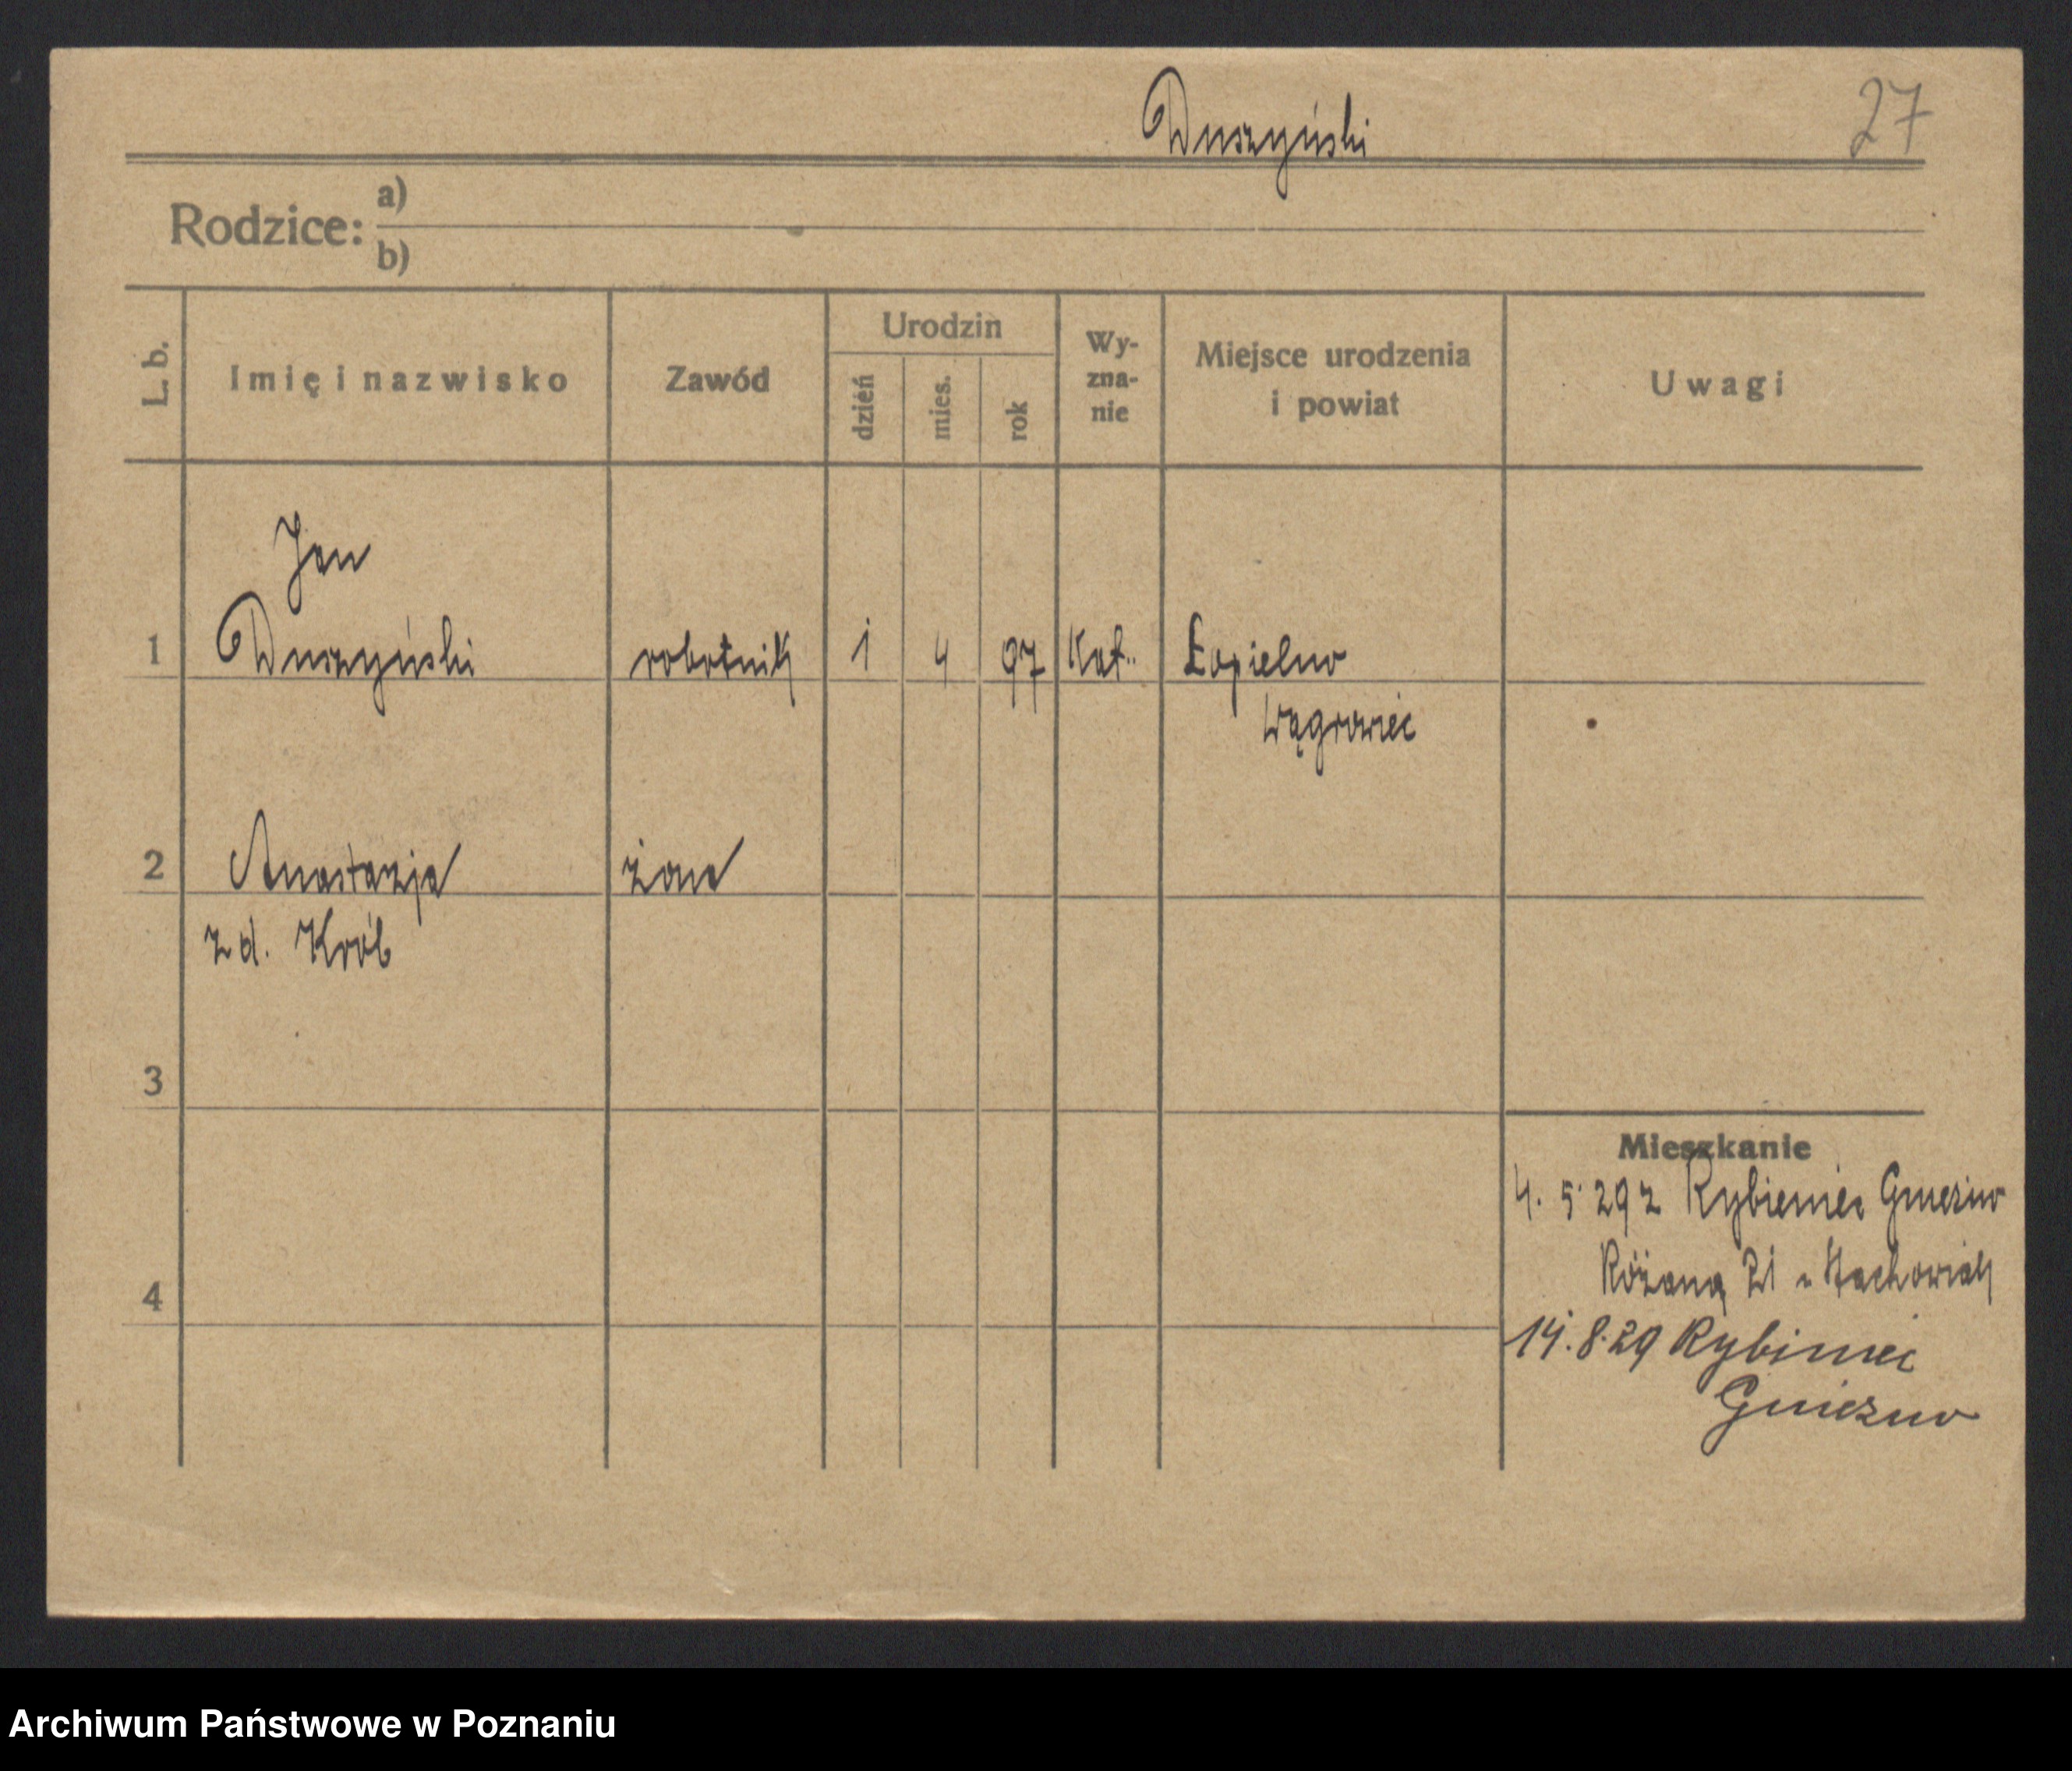 Duszyński 27
Rodzice: a)
b)
L. b. Imię i nazwisko Zawód Urodzin dzień mies. rok Wy-zna-nie Miejsce urodzenia i powiat Uwagi
Jan
1 Duszyński robotnik 1 4 97 Kat. Łopielno
Wągrowiec
2 Anastazja żona
z d. Król
3
Mieszkanie
4. 5. 29 z Rybieniec Gniezno
Różana 21 u Stachowiak
4
14.8.29 Rybiniec
Gniezno
Archiwum Państwowe w Poznaniu